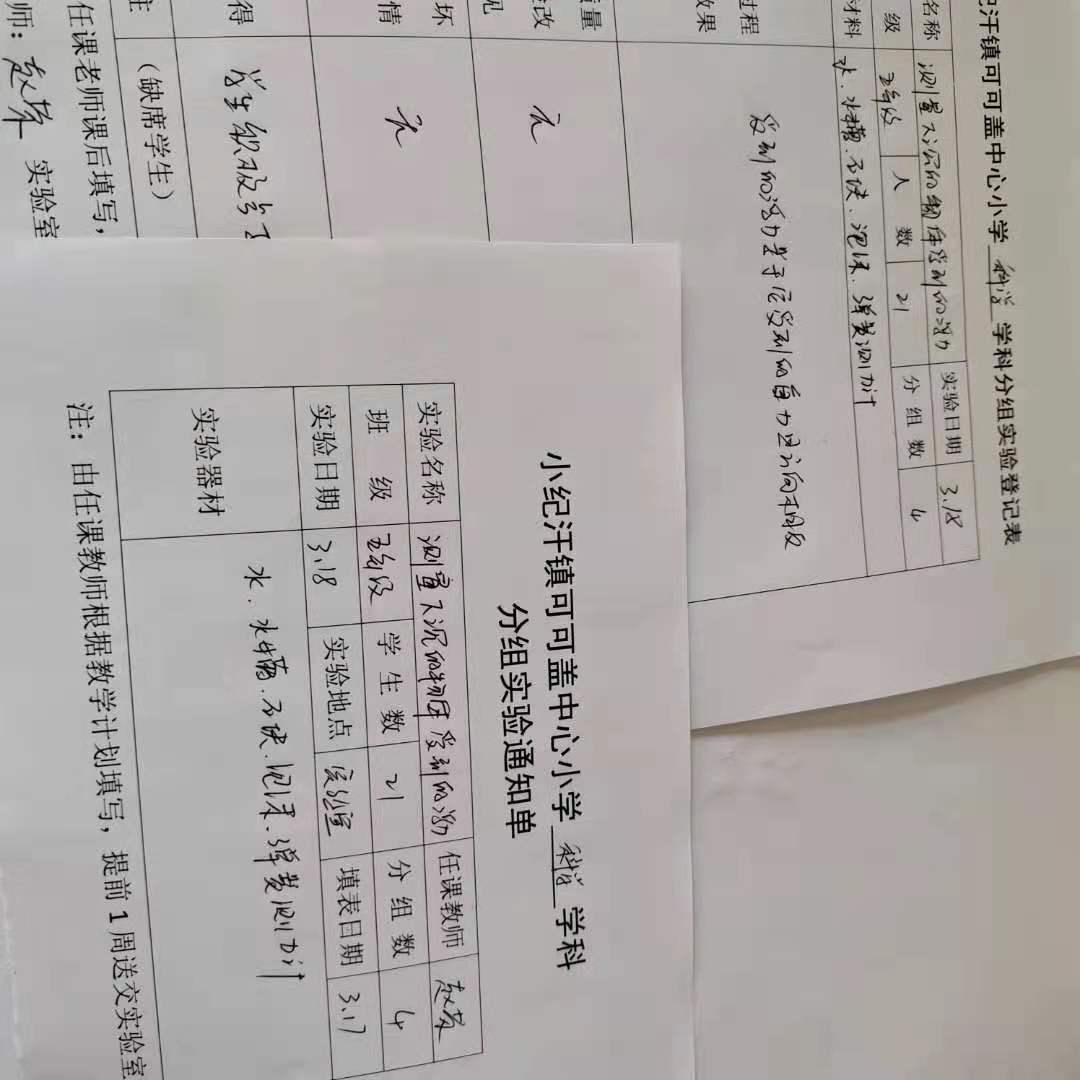 纪汗镇可可盖中心小学 科学 学科分组实验登记表
名称 测量下沉的物体受到的浮力 实验日期 3.18
级 五年级 人数 21 分组数 4
材料 水、水槽、石块、泡沫、弹簧测力计
过程
效果
受到的浮力 于它受到的重力 方向相反
质量
改
见
无
坏
情
无
得
学生积极
注 (缺席学生)
任课老师课后填写,
师: 实验室
小纪汗镇可可盖中心小学 科学 学科
分组实验通知单
实验名称 测量下沉的物体受到的浮力 任课教师
班级 五年级 学生数 21 分组数 4
实验日期 3.18 实验地点 实验室 填表日期 3.17
实验器材 水、水槽、石块、泡沫、弹簧测力计
注: 由任课教师根据教学计划填写, 提前1周送交实验室